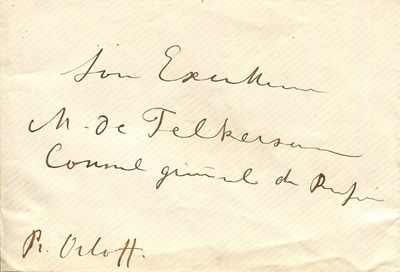 Son Excellence
M. de Felkersam
Consul général de Russie
Pr. Orloff.